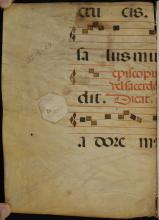 cru cis.
sa lus mu
episcopu
vel sacerdo
dit. Dicat.
a dorc m